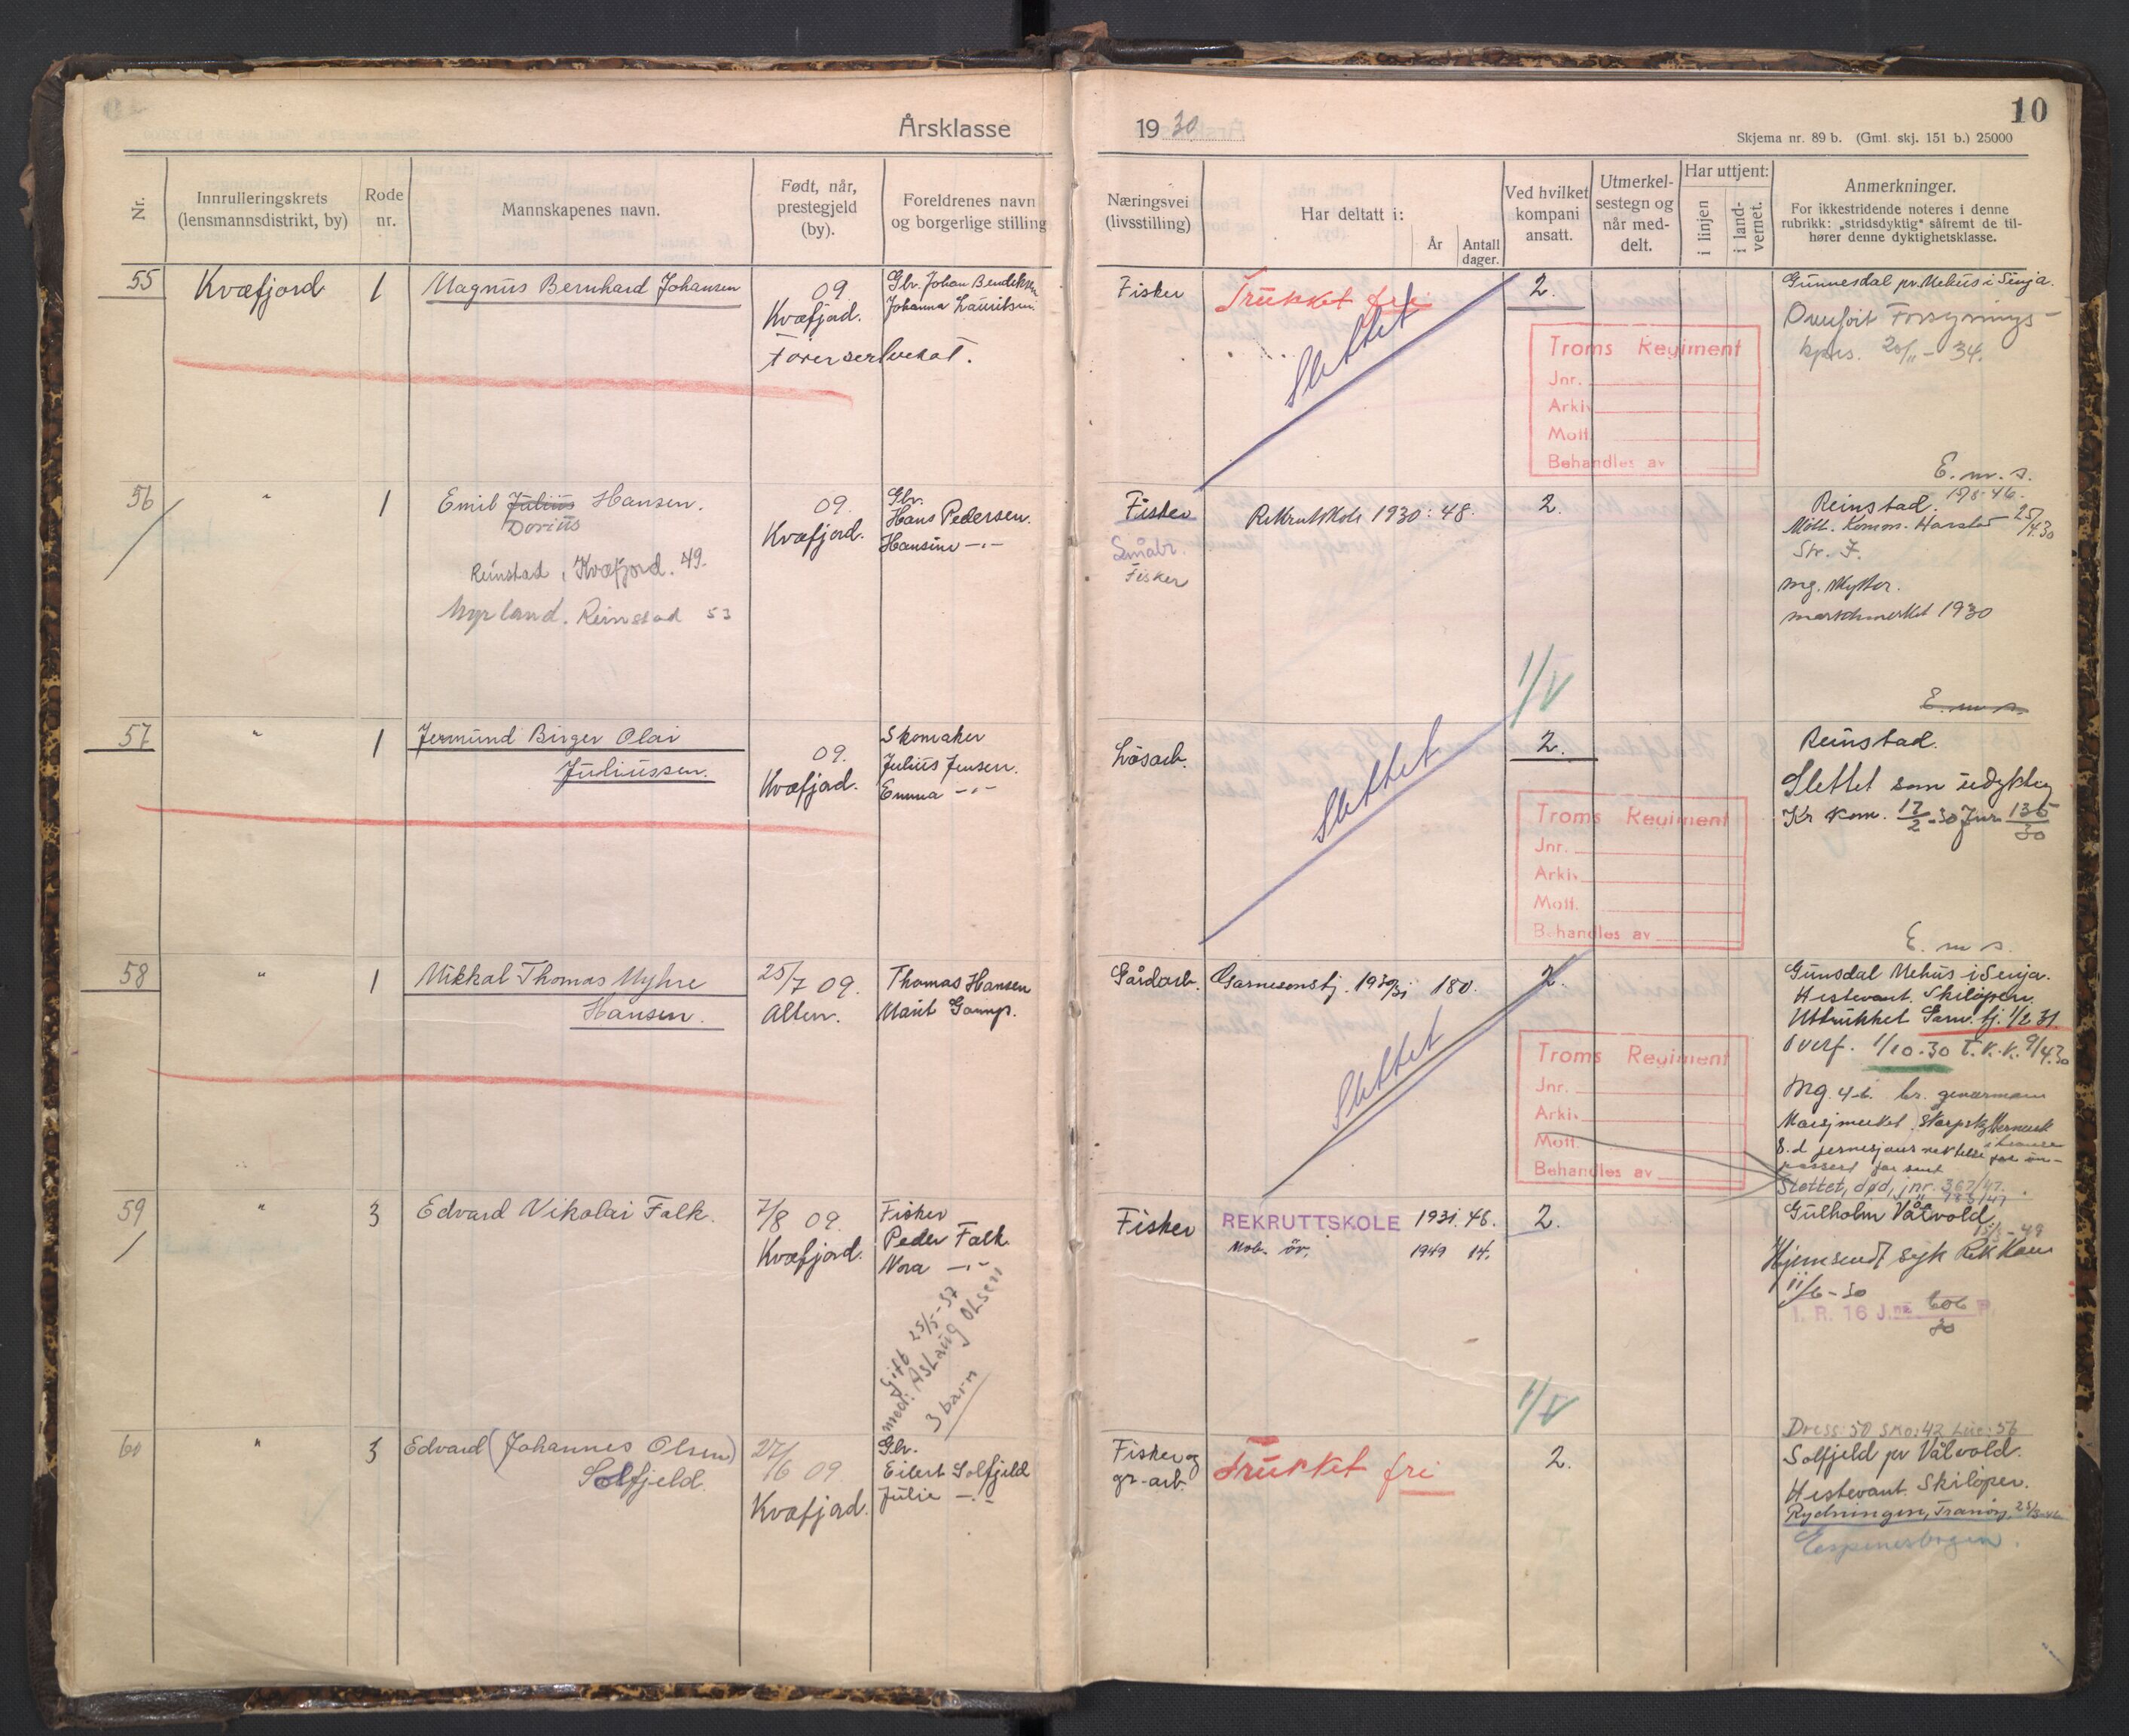 Årsklasse
1930
10
Skjema nr. 89 b. (Gml. skj. 151 b.) 25000
Nr.
Innrulleringskrets
(lensmannsdistrikt, by)
Rode
nr.
Mannskapenes navn.
Født, når,
prestegjeld
(by).
Foreldrenes navn
og borgerlige stilling
Næringsvei
(livsstilling)
Har deltatt i:
År
Antall
dager.
Ved hvilket
kompani
ansatt.
Utmerkel-
sestegn og
når med-
delt.
Har uttjent:
i linjen
i land-
vernet.
Anmerkninger.
For ikkestridende noteres i denne
rubrikk: „stridsdyktig" såfremt de til-
hører denne dyktighetsklasse.
55
Kvæfjord
1
Magnus Bernhard Johansen
09
Kvæfjord.
Gbr. Johan Bendiksen
Johanna Lauritsen.
Fisker
Trukket fri
Slettet
2.
Troms Regiment
Jnr.
Arkiv
Mott.
Behandles av
Gunnesdal pr. Mehus i Senja.
Overført Forsynings-
kpns. 20/11-34.
E. m. s.
56
"
1
Emil Julius Hansen.
Dorius
Reinstad, Kvæfjord. 49.
Myrland. Reinstad 53
09.
Kvæfjord.
Gbr.
Hans Pedersen.
Hansine -"-
Fisker
Småbr.
Fisker
Rekrutskole 1930: 48.
2.
Reinstad. 15/8-46.
Mött. Komm. Harstad 25/4.30
Str. F.
mg. skytter.
marschmerket 1930
1/V
E. m. s.
57
"
1
Jermund Birger Olai
Juliussen.
09.
Kvæfjord.
Skomaker
Julius Jensen.
Emma -"-
Løsarb.
Slettet
2.
Troms Regiment
Jnr.
Arkiv
Mott.
Behandles av
Reinstad.
Slettet som udyktig
Kr kom. 17/2-30 Jnr. 135/30
E. m s.
58
"
1
Mikkal Thomas Myhre
Hansen.
25/7 09.
Alten.
Thomas Hansen
Marit Gamp.
Gårdarb.
Garnisonstj. 1930/31 180.
Slettet
2.
Troms Regiment
Jnr.
Arkiv
Mott.
Behandles av
Gunsdal Mehus i Senja.
Hestevant. Skiløper.
Uttrukket Garn. tj. 1/2 31.
Overf. 1/10-30 T.K.K. 9/4.30
Slettet, død, jnr. 367/47.
59
"
3
Edvard Nikolai Falk.
7/8 09.
Kvæfjord.
Fisker
Peder Falk
Nora -"-
gift 25/5-37
med: Aslaug Olsen
3 barn
Fisker
REKRUTTSKOLE 1931. 46.
Mob. öv. 1949 14.
2.
Gulholm Våtvold
15/3-49
Hjemsendt syk Rek Kom
11/6-30
I. R. 16 J.nr. 606/30 P.
1/V
60
"
3
Edvard (Johannes Olsen)
Solfjeld.
27/6 09.
Kvæfjord.
Gbr.
Eilert Solfjeld
Julie -"-
Fisker og
gr-arb.
Trukket fri
2.
Dress: 50 sko: 42 Lue: 56
Solfjeld pr Våtvold.
Hestevant. Skiløper.
Rydningen, Tranøy, 25/3-46